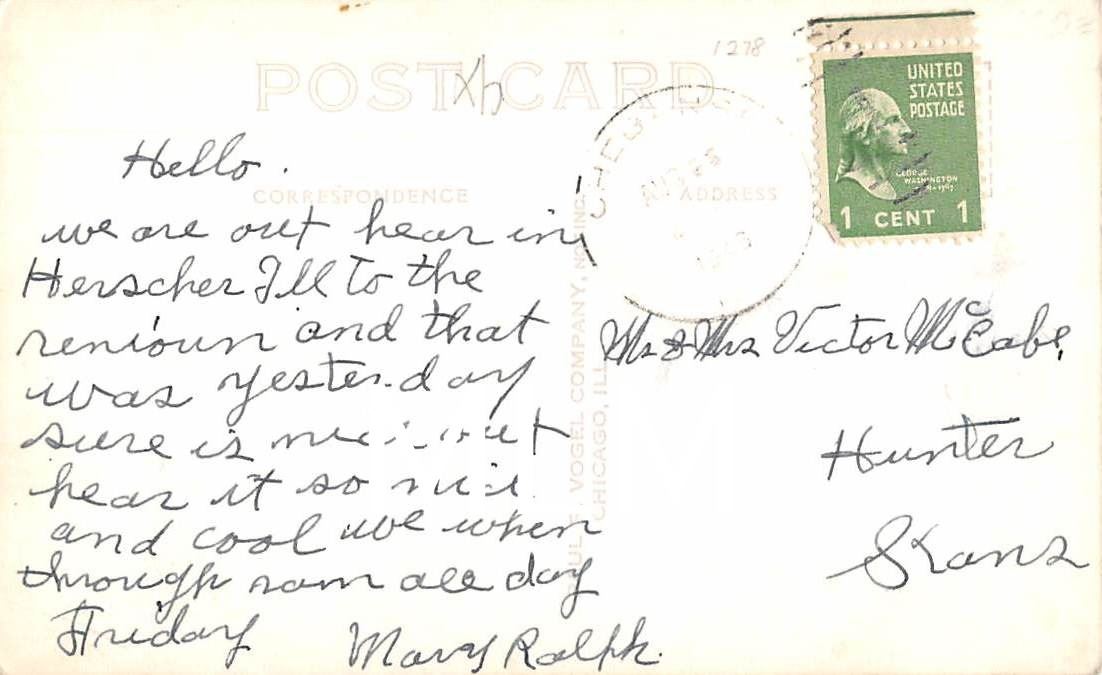 1278
POST CARD
UNITED
STATES
POSTAGE
GEORGE
WASHINGTON
1 CENT 1
CORRESPONDENCE
ADDRESS
Hello.
we are out hear in
Herscher Ill to the
renioun and that
was yesterday
sure is out
hear it so
and cool we when
through rain all day
Friday
Mary Ralph.
Mr & Mrs Victor McCabe,
Hunter
Kans
VOGEL COMPANY,
CHICAGO, ILL